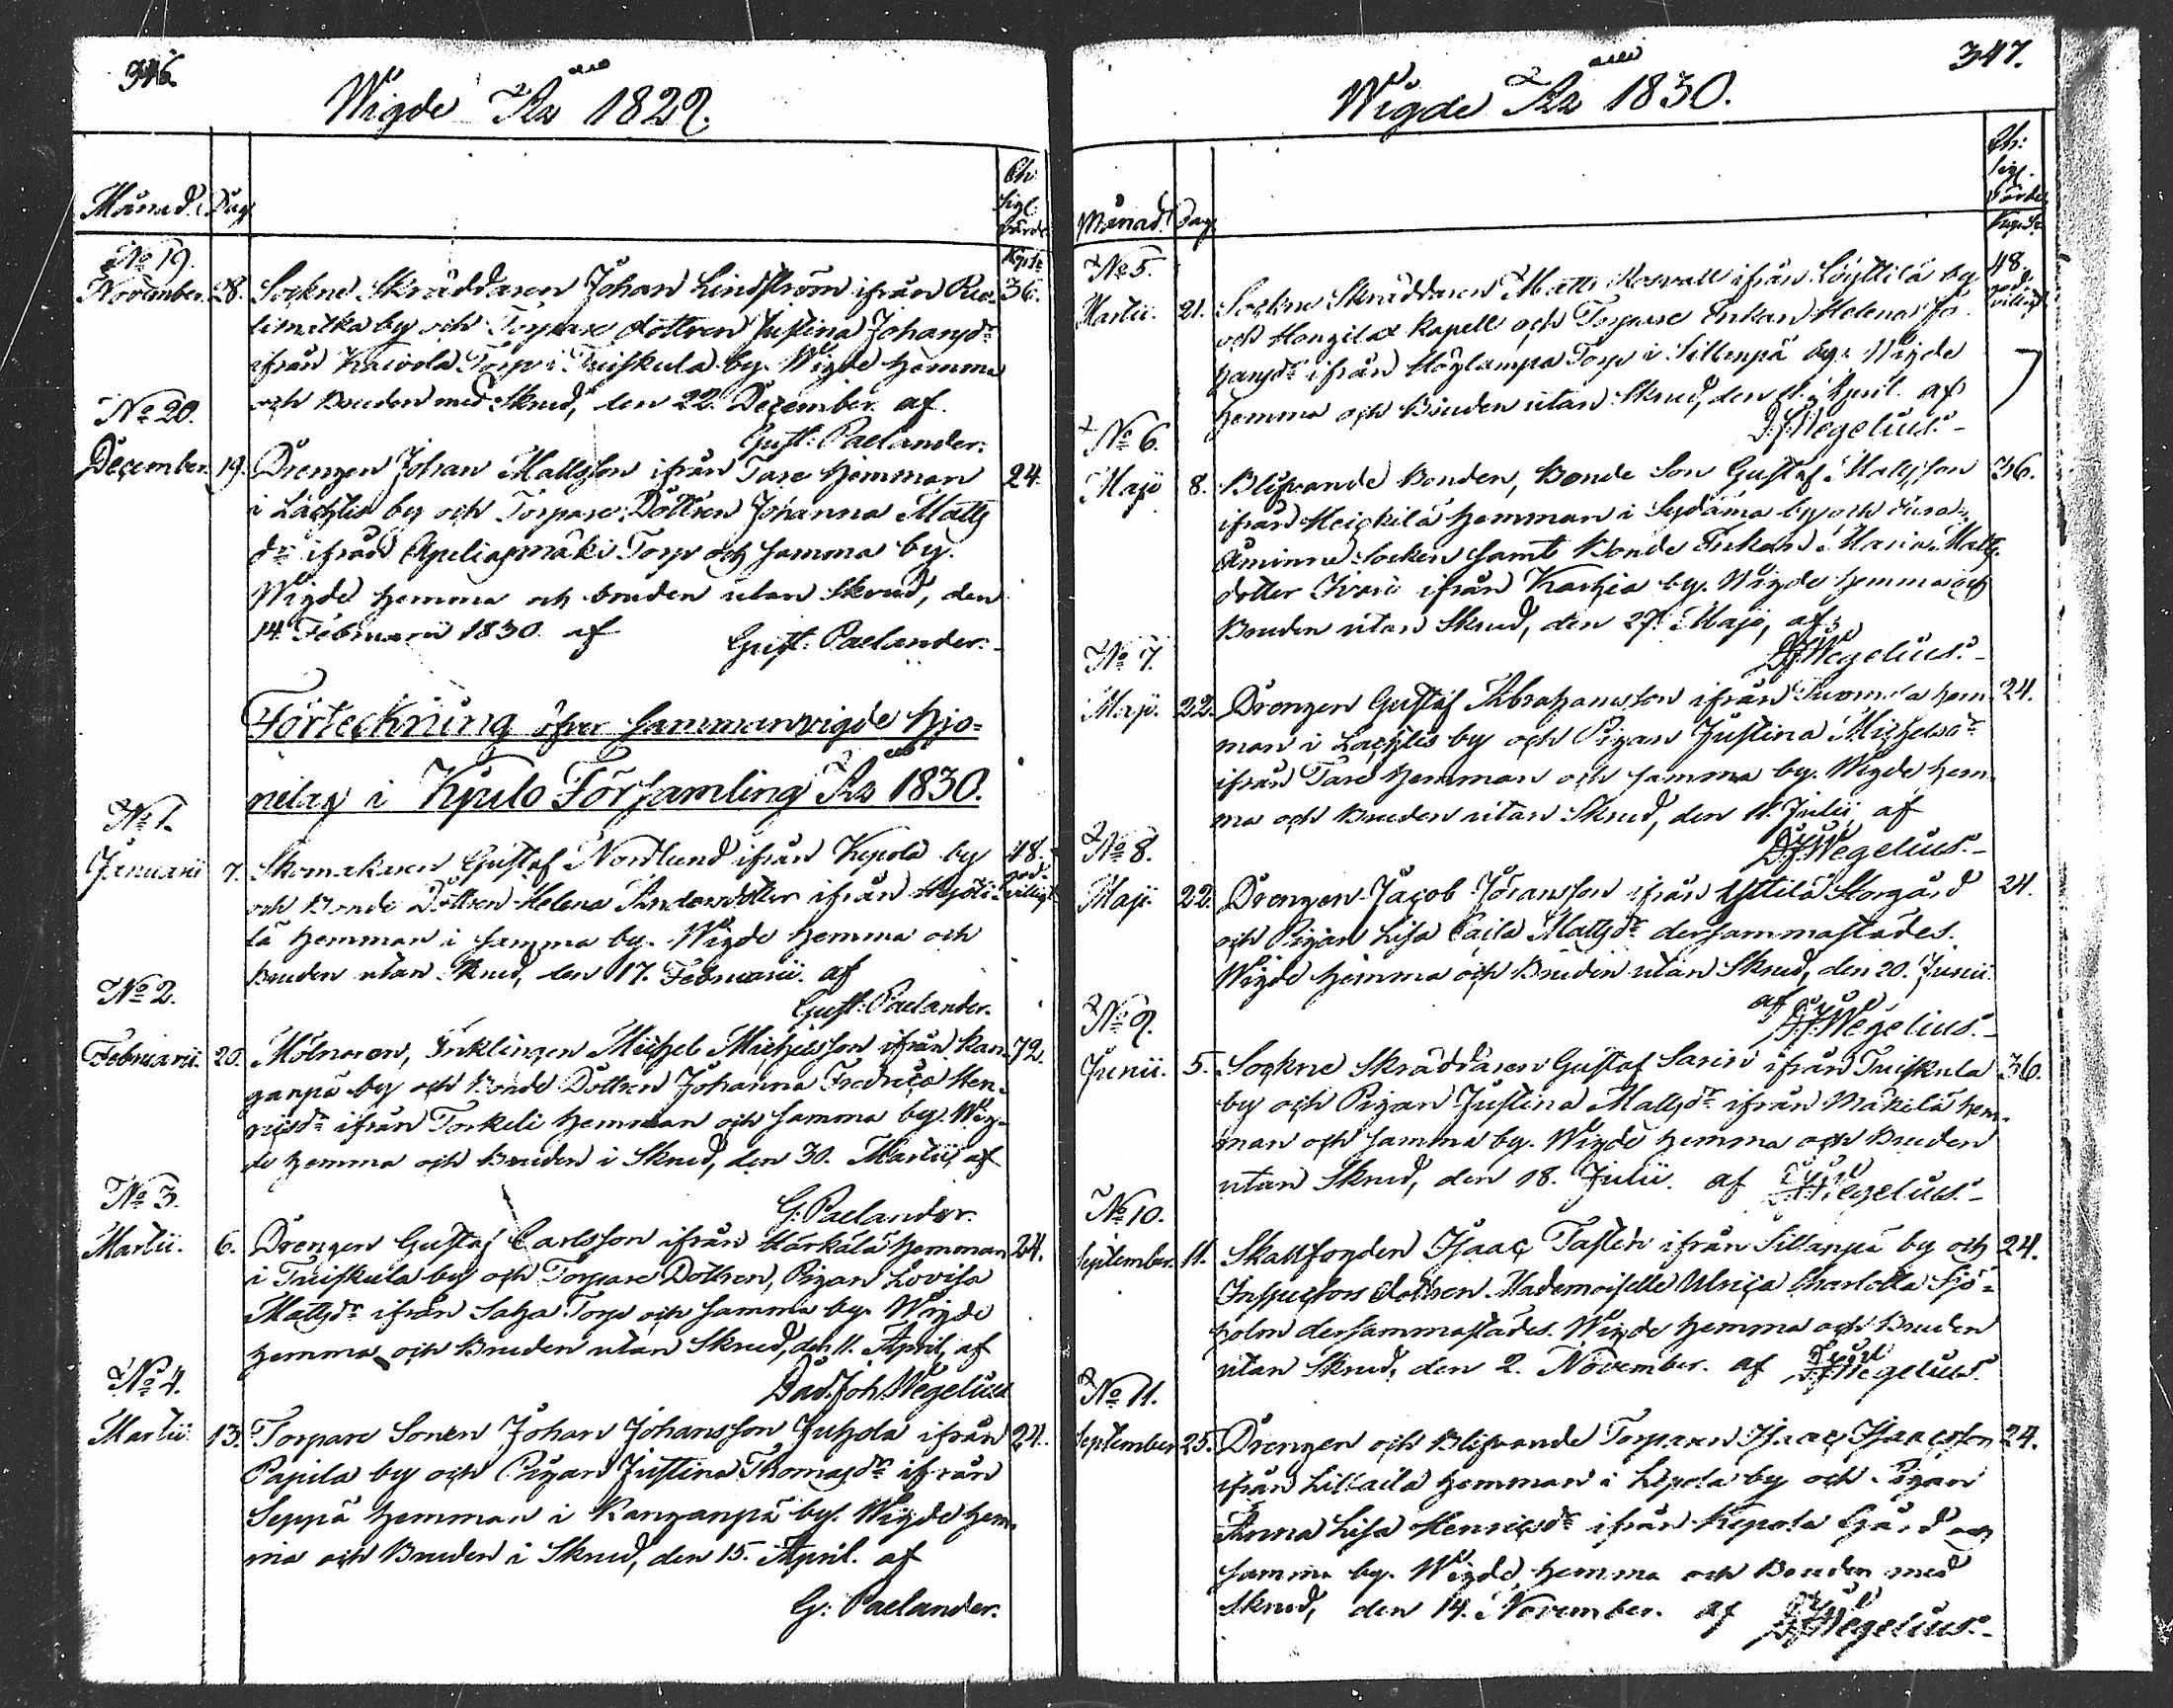 346.
Wigde År 1829.
Månad. Dag
Ch:
Sigl:
Vårde
Kop: Sr
No 19.
November. 28. Sockne Skräddaren Johan Lindström ifrån 36.
by och Torpare dottren Justina Johansdr
ifrån Kaivola Torp i Tuiskula by. Wigde hemma
och Bruden med Skrud, den 22. December. af
Gust: Paelander.
No 20.
December. 19. Drengen Johan Mattsson ifrån Tare Hemman 24.
i Lächtis by och Torpare Dottren Johanna Matts
dr ifrån Torp och samma by.
Wigde hemma och bruden utan Skrud, den
14. Februarii 1830. af Gust: Paelander.
Förteckning öfver sammanvigde Hjo-
nelag i Kjulo Församling År 1830.
No 1.
Januarii 7. Skomakaren Gustaf Nordlund ifrån Kepola by 48.
och Bonde Dottren Helena Andersdotter ifrån godvilligt
lä Hemman i samma by. Wigde hemma och
Bruden utan Skrud, den 17. Februarii. af
Gust: Paelander.
No 2.
Februarii. 20. Mölnaren, Ynklingen Michel Michelsson ifrån Kan- 72.
ganpä by och Bonde Dottren Johanna Fredrica Hen-
ricsdr ifrån Torkeli Hemman och samma by. Wig-
de hemma och Bruden i Skrud, den 30. Martii, af
G: Paelander.
No 3.
Martii. 6. Drengen Gustaf Carlsson ifrån Härkälä Hemman 24.
i Tuiskula by och Torpare Dottren, Pigan Lovisa
Mattsdr ifrån Saha Torp och samma by. Wigde
hemma och Bruden utan Skrud, den 11. April, af
Dav. Joh. Wegelius
No 4.
Martii. 13. Torpare Sonen Johan Johansson Juhola ifrån 24.
Papila by och Pigan Justina Thomasdr ifrån
Seppä Hemman i Kanganpä by. Wigde hem-
ma och Bruden i Skrud, den 15. April. af
G: Paelander.
347.
Wigde År 1830.
Månad. Dag
Ch:
Sigl.
Vårde
Kop: Sr
No 5.
Martii. 21. Sockne Skräddaren Matts Rosvall ifrån Löyttilä by 48.
och Hongilax Kapell och Torpare Enkan Helena Jo- godvilligt
hansdr ifrån Torp i Sillenpä by. Wigde
hemma och Bruden utan Skrud, den 11. April. af
D. J. Wegelius.
No 6.
Maji 8. Blifvande Bonden, Bonde Son Gustaf Mattsson 36.
ifrån Heickilä Hemman i Sydäma by och Eura-
Åminne Socken samt Bonde Enkan Maria Matts
dotter ifrån Karhia by. Wigde hemma och
Bruden utan Skrud, den 27. Maji, af
D. J. Wegelius.
No 7.
Maji. 22. Drengen Gustaf Abrahamsson ifrån Tuomola Hem- 24.
man i Lächtis by och Pigan Justina Michelsdr
ifrån Tare Hemman och samma by. Wigde hem-
ma och Bruden utan Skrud, den 11. Julii, af
D. J. Wegelius.
No 8.
Maji. 22. Drengen Jacob Göransson ifrån Yttilä Storgård 24.
och Pigan Lisa Caisa Mattsdr dersammastädes.
Wigde hemma och Bruden utan Skrud, den 20. Junii.
af D. J. Wegelius.
No 9.
Junii. 5. Sockne Skräddaren Gustaf Sarin ifrån Tuiskula 36.
by och Pigan Justina Mattsdr ifrån Mäkilä Hem-
man och samma by. Wigde hemma och Bruden
utan Skrud, den 18. Julii. af D. J. Wegelius.
No 10.
September. 11. Skattfogden Isaac Tasten ifrån Sillanpä by och 24.
Inspectors dottren Mademoiselle Ulrica Charlotta Sjö-
holm dersammastädes. Wigde hemma och Bruden
utan Skrud, den 2. November. af D. J. Wegelius.
No 11.
September 25. Drengen och Blifvande Torparen Isaac Isaacsson 24.
ifrån Hemman i by och Pigan
Anna Lisa Henricsdr ifrån Kepola Gård och
samma by. Wigde hemma och Bruden med
Skrud, den 14. November. af D. J. Wegelius.